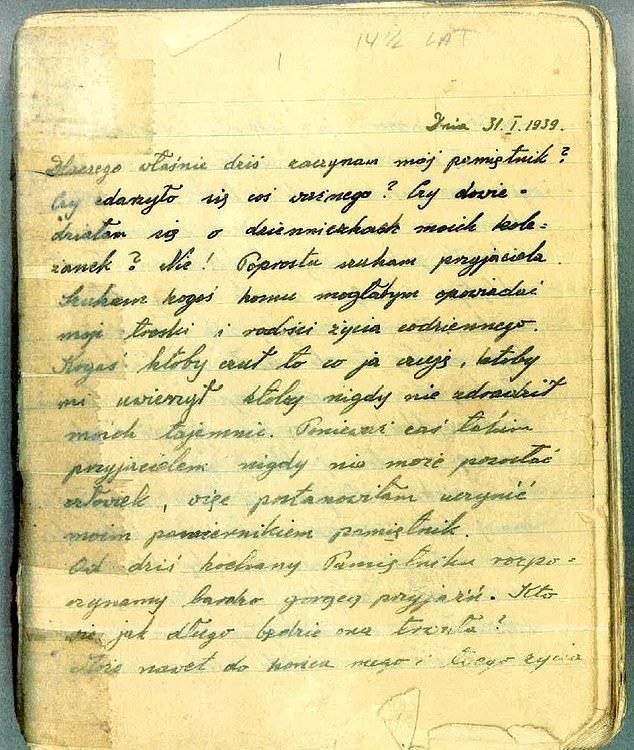 14½ LAT
1
Dnia 31.I.1939.
Dlaczego właśnie dziś zaczynam mój pamiętnik?
Czy zdarzyło się coś ważnego? Czy dowie-
działam się o dzienniczkach moich kole-
żanek? Nie! Poprostu szukam przyjaciela.
Szukam kogoś komu mogłabym opowiadać
moje troski i radości życia codziennego.
Kogoś ktoby czuł to co ja czuję, ktoby
mi uwierzył ktoby nigdy nie zdradził
moich tajemnic. Ponieważ zaś takim
przyjacielem nigdy nie może pozostać
człowiek, więc postanowiłam uczynić
moim powiernikiem pamiętnik.
Od dziś kochany Pamiętniku rozpo-
czynamy bardzo gorącą przyjaźń. Kto
wie jak długo będzie ona trwała?
Może nawet do końca mego i Twego życia